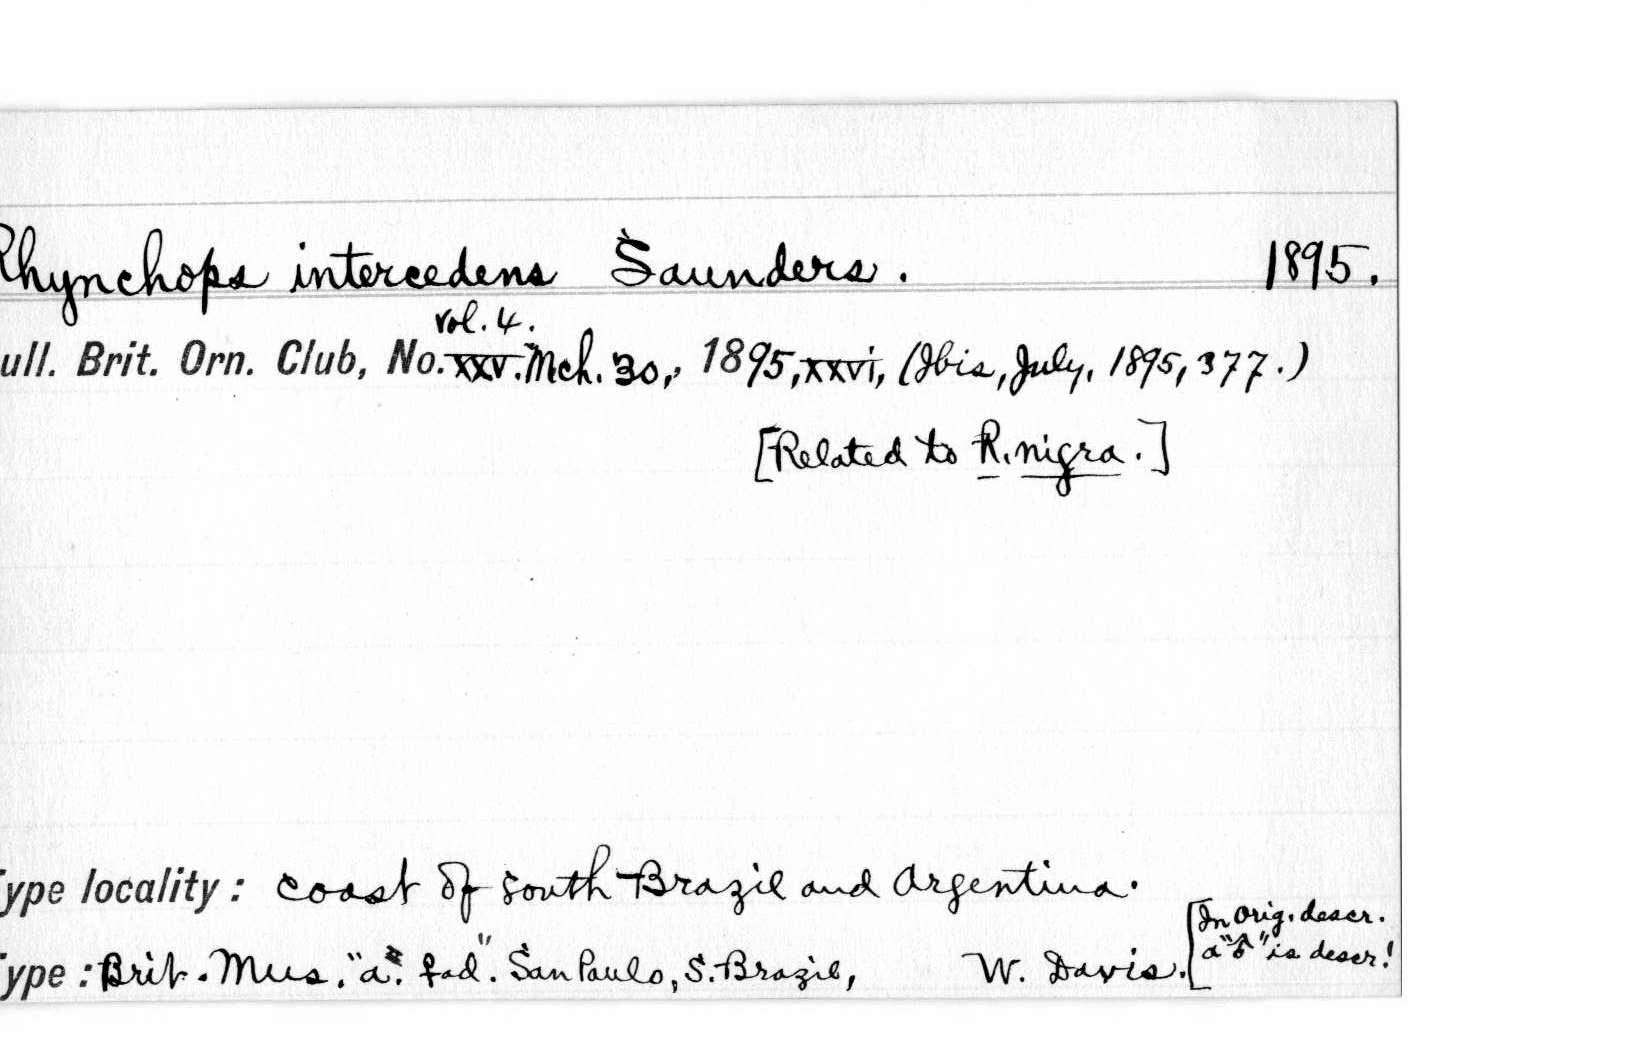 Rhynchops intercedens Saunders. 1895.
vol. 4.
ull. Brit. Orn. Club, No. xxv. Mch. 30, 1895, xxvi, (Ibis, July, 1895, 377.)
[Related to R. nigra.]
ype locality: coast of South Brazil and Argentina.
[In orig. descr.
a "♂" is descr!
ype: Brit. Mus. "a. ♀ ad". San Paulo, S. Brazil, W. Davis.